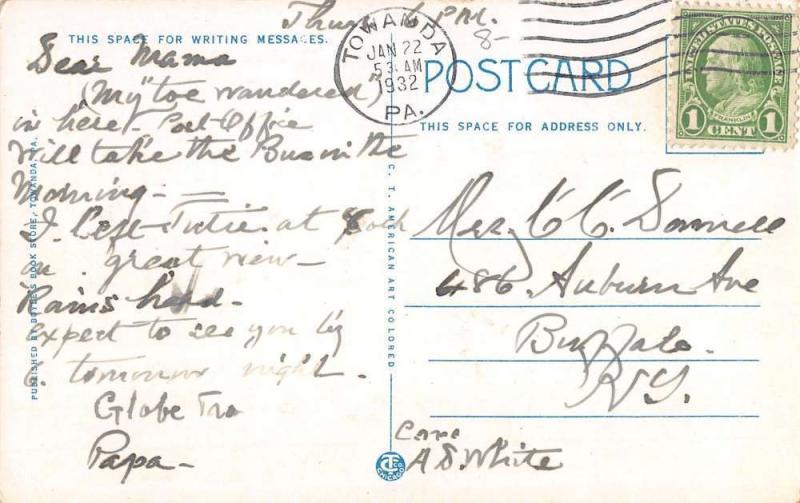 Thurs 6 PM.
8-
THIS SPACE FOR WRITING MESSAGES.
Dear Mama
(My toe wandered)
in here - Post Office
Will take the Bus in the
Morning -
I left at
an great view -
Rains hard -
expect to see you by
6. tomorrow night.
Globe Tro
Papa -
PUBLISHED BY BOYLE'S BOOK STORE, TOWANDA, PA.
C. T. AMERICAN ART COLORED
TOWANDA
JAN 22
5 30 AM
1932
PA.
POST CARD
THIS SPACE FOR ADDRESS ONLY.
UNITED STATES POSTAGE
FRANKLIN
1 CENT 1
Mrs. C. C.
486 Auburn Ave
Buffalo.
N.Y.
Care
A. S. White
CHICAGO